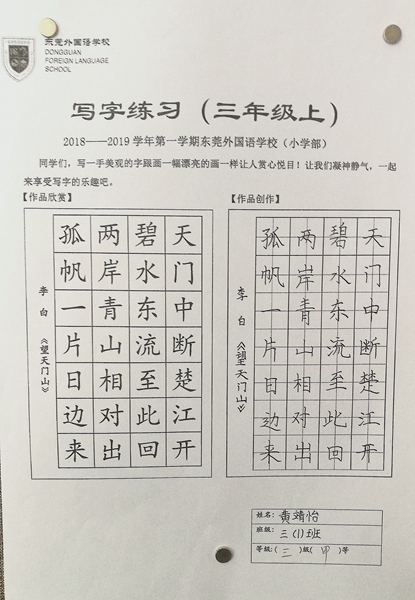 东莞外国语学校
DONGGUAN
FOREIGN LANGUAGE
SCHOOL
写字练习（三年级上）
2018——2019学年第一学期东莞外国语学校（小学部）
同学们，写一手美观的字跟画一幅漂亮的画一样让人赏心悦目！让我们凝神静气，一起
来享受写字的乐趣吧。
【作品欣赏】
天门中断楚江开
碧水东流至此回
两岸青山相对出
孤帆一片日边来
李白《望天门山》
【作品创作】
天门中断楚江开
碧水东流至此回
两岸青山相对出
孤帆一片日边来
李白《望天门山》
姓名：黄靖怡
班级：三（1）班
等级：（三）级（甲）等